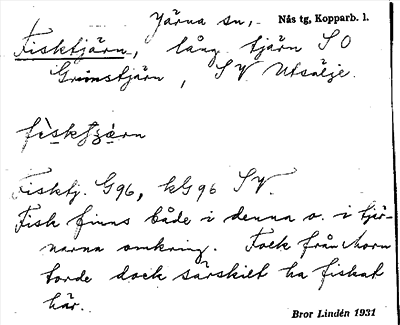 Järna sn, Nås tg, Kopparb. l.
Fisktjärn, lång tjärn SO
Grimstjärn, SV Utsälje.
Fisktj. G96, kG96 SV.
Fisk finns både i denna o. i tjär-
narna omkring. Folk från
torde dock särskilt ha fiskat
här.
Bror Lindén 1931